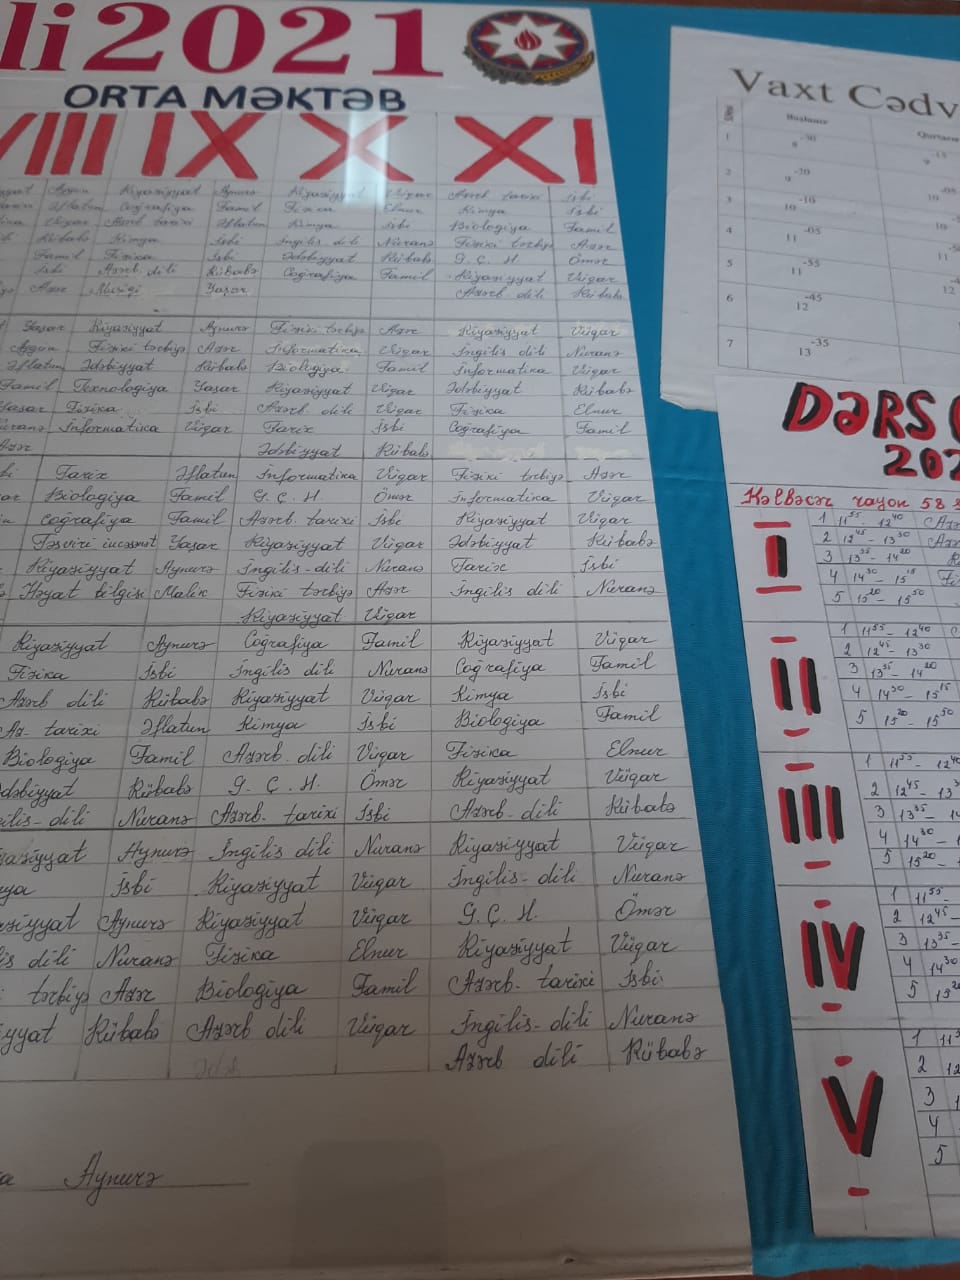 li 2021
ORTA MƏKTƏB
VIII IX X XI
Aygün Riyaziyyat Aynurə Riyaziyyat Vüqar Azərb tarixi İsbi
Əflatun Coğrafiya Famil Fizika Elnur Kimya İsbi
Vüqar Azərb tarixi Əflatun Kimya İsbi Biologiya Famil
Rübabə Kimya İsbi İngilis dili Nuranə Fiziki tərbiyə Azər
Famil Fizika İsbi Ədəbiyyat Rübabə G. Ç. H. Ömər
İsbi Azərb. dili Rübabə Coğrafiya Famil Riyaziyyat Vüqar
Azər Musiqi Yaşar Azərb dili Rübabə
Yaşar Riyaziyyat Aynurə Fiziki tərbiyə Azər Riyaziyyat Vüqar
Aygün Fiziki tərbiyə Azər İnformatika Vüqar İngilis dili Nuranə
Əflatun Ədəbiyyat Rübabə Biologiya Famil İnformatika Vüqar
Famil Texnologiya Yaşar Riyaziyyat Vüqar Ədəbiyyat Rübabə
Yaşar Fizika İsbi Azərb dili Vüqar Fizika Elnur
Nuranə İnformatika Vüqar Tarix İsbi Coğrafiya Famil
Azər Ədəbiyyat Rübabə
bi Tarix Əflatun İnformatika Vüqar Fiziki tərbiyə Azər
ar Biologiya Famil G. Ç. H. Ömər İnformatika Vüqar
Coğrafiya Famil Azərb. tarixi İsbi Riyaziyyat Vüqar
Təsviri incəsənət Yaşar Riyaziyyat Vüqar Ədəbiyyat Rübabə
Riyaziyyat Aynurə İngilis-dili Nuranə Tarix İsbi
Həyat bilgisi Malik Fiziki tərbiyə Azər İngilis dili Nuranə
Riyaziyyat Vüqar
Riyaziyyat Aynurə Coğrafiya Famil Riyaziyyat Vüqar
Fizika İsbi İngilis dili Nuranə Coğrafiya Famil
Azərb dili Rübabə Riyaziyyat Vüqar Kimya İsbi
Az. tarixi Əflatun Kimya İsbi Biologiya Famil
Biologiya Famil Azərb. dili Vüqar Fizika Elnur
dəbiyyat Rübabə G. Ç. H. Ömər Riyaziyyat Vüqar
gilis-dili Nuranə Azərb- tarixi İsbi Azərb- dili Rübabə
yaziyyat Aynurə İngilis dili Nuranə Riyaziyyat Vüqar
ya İsbi Riyaziyyat Vüqar İngilis-dili Nuranə
aziyyat Aynurə Riyaziyyat Vüqar G. Ç. H. Ömər
lis dili Nuranə Fizika Elnur Riyaziyyat Vüqar
tərbiyə Azər Biologiya Famil Azərb- tarixi İsbi
iyyat Rübabə Azərb dili Vüqar İngilis-dili Nuranə
Azərb dili Rübabə
Aynurə
Vaxt Cədv
Başlanır
1 8-30 9-15
2 9-20
3 10-10
4 11-05
5 11-55
6 12-45
7 13-35
DƏRS
202
Kəlbəcər rayon 58
I
1 11 55 - 12 40
2 12 45 - 13 30
3 13 35 - 14 20
4 14 30 - 15 15
5 15 20 - 15 50
II
1 11 55 - 12 40
2 12 45 - 13 30
3 13 35 - 14 20
4 14 30 - 15 15
5 15 20 - 15 50
III
1 11 55 - 12 40
2 12 45 - 13
3 13 35 - 14
4 14 30 -
5 15 20 -
IV
1 11 55 -
2 12 45 -
3 13 35 -
4 14 30
5 15 20
V
1 11
2 12
3 13
4
5